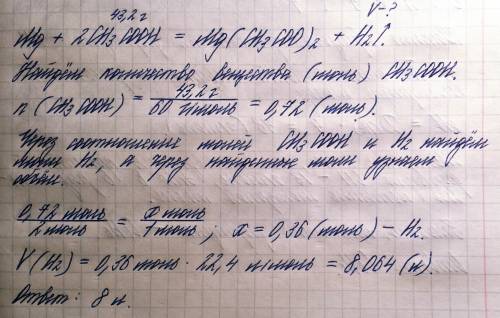 43,2 г V-?
Mg + 2CH₃COOH = Mg(CH₃COO)₂ + H₂↑.
Найдём количество вещества (моль) CH₃COOH.
n (CH₃COOH) = 43,2 г / 60 г/моль = 0,72 (моль).
Через соотношения молей CH₃COOH и H₂ найдём
моли H₂, а через найденные моли узнаем
объём.
0,72 моль / 2 моль = x моль / 1 моль ; x = 0,36 (моль) - H₂.
V (H₂) = 0,36 моль · 22,4 л/моль = 8,064 (л).
Ответ: 8 л.